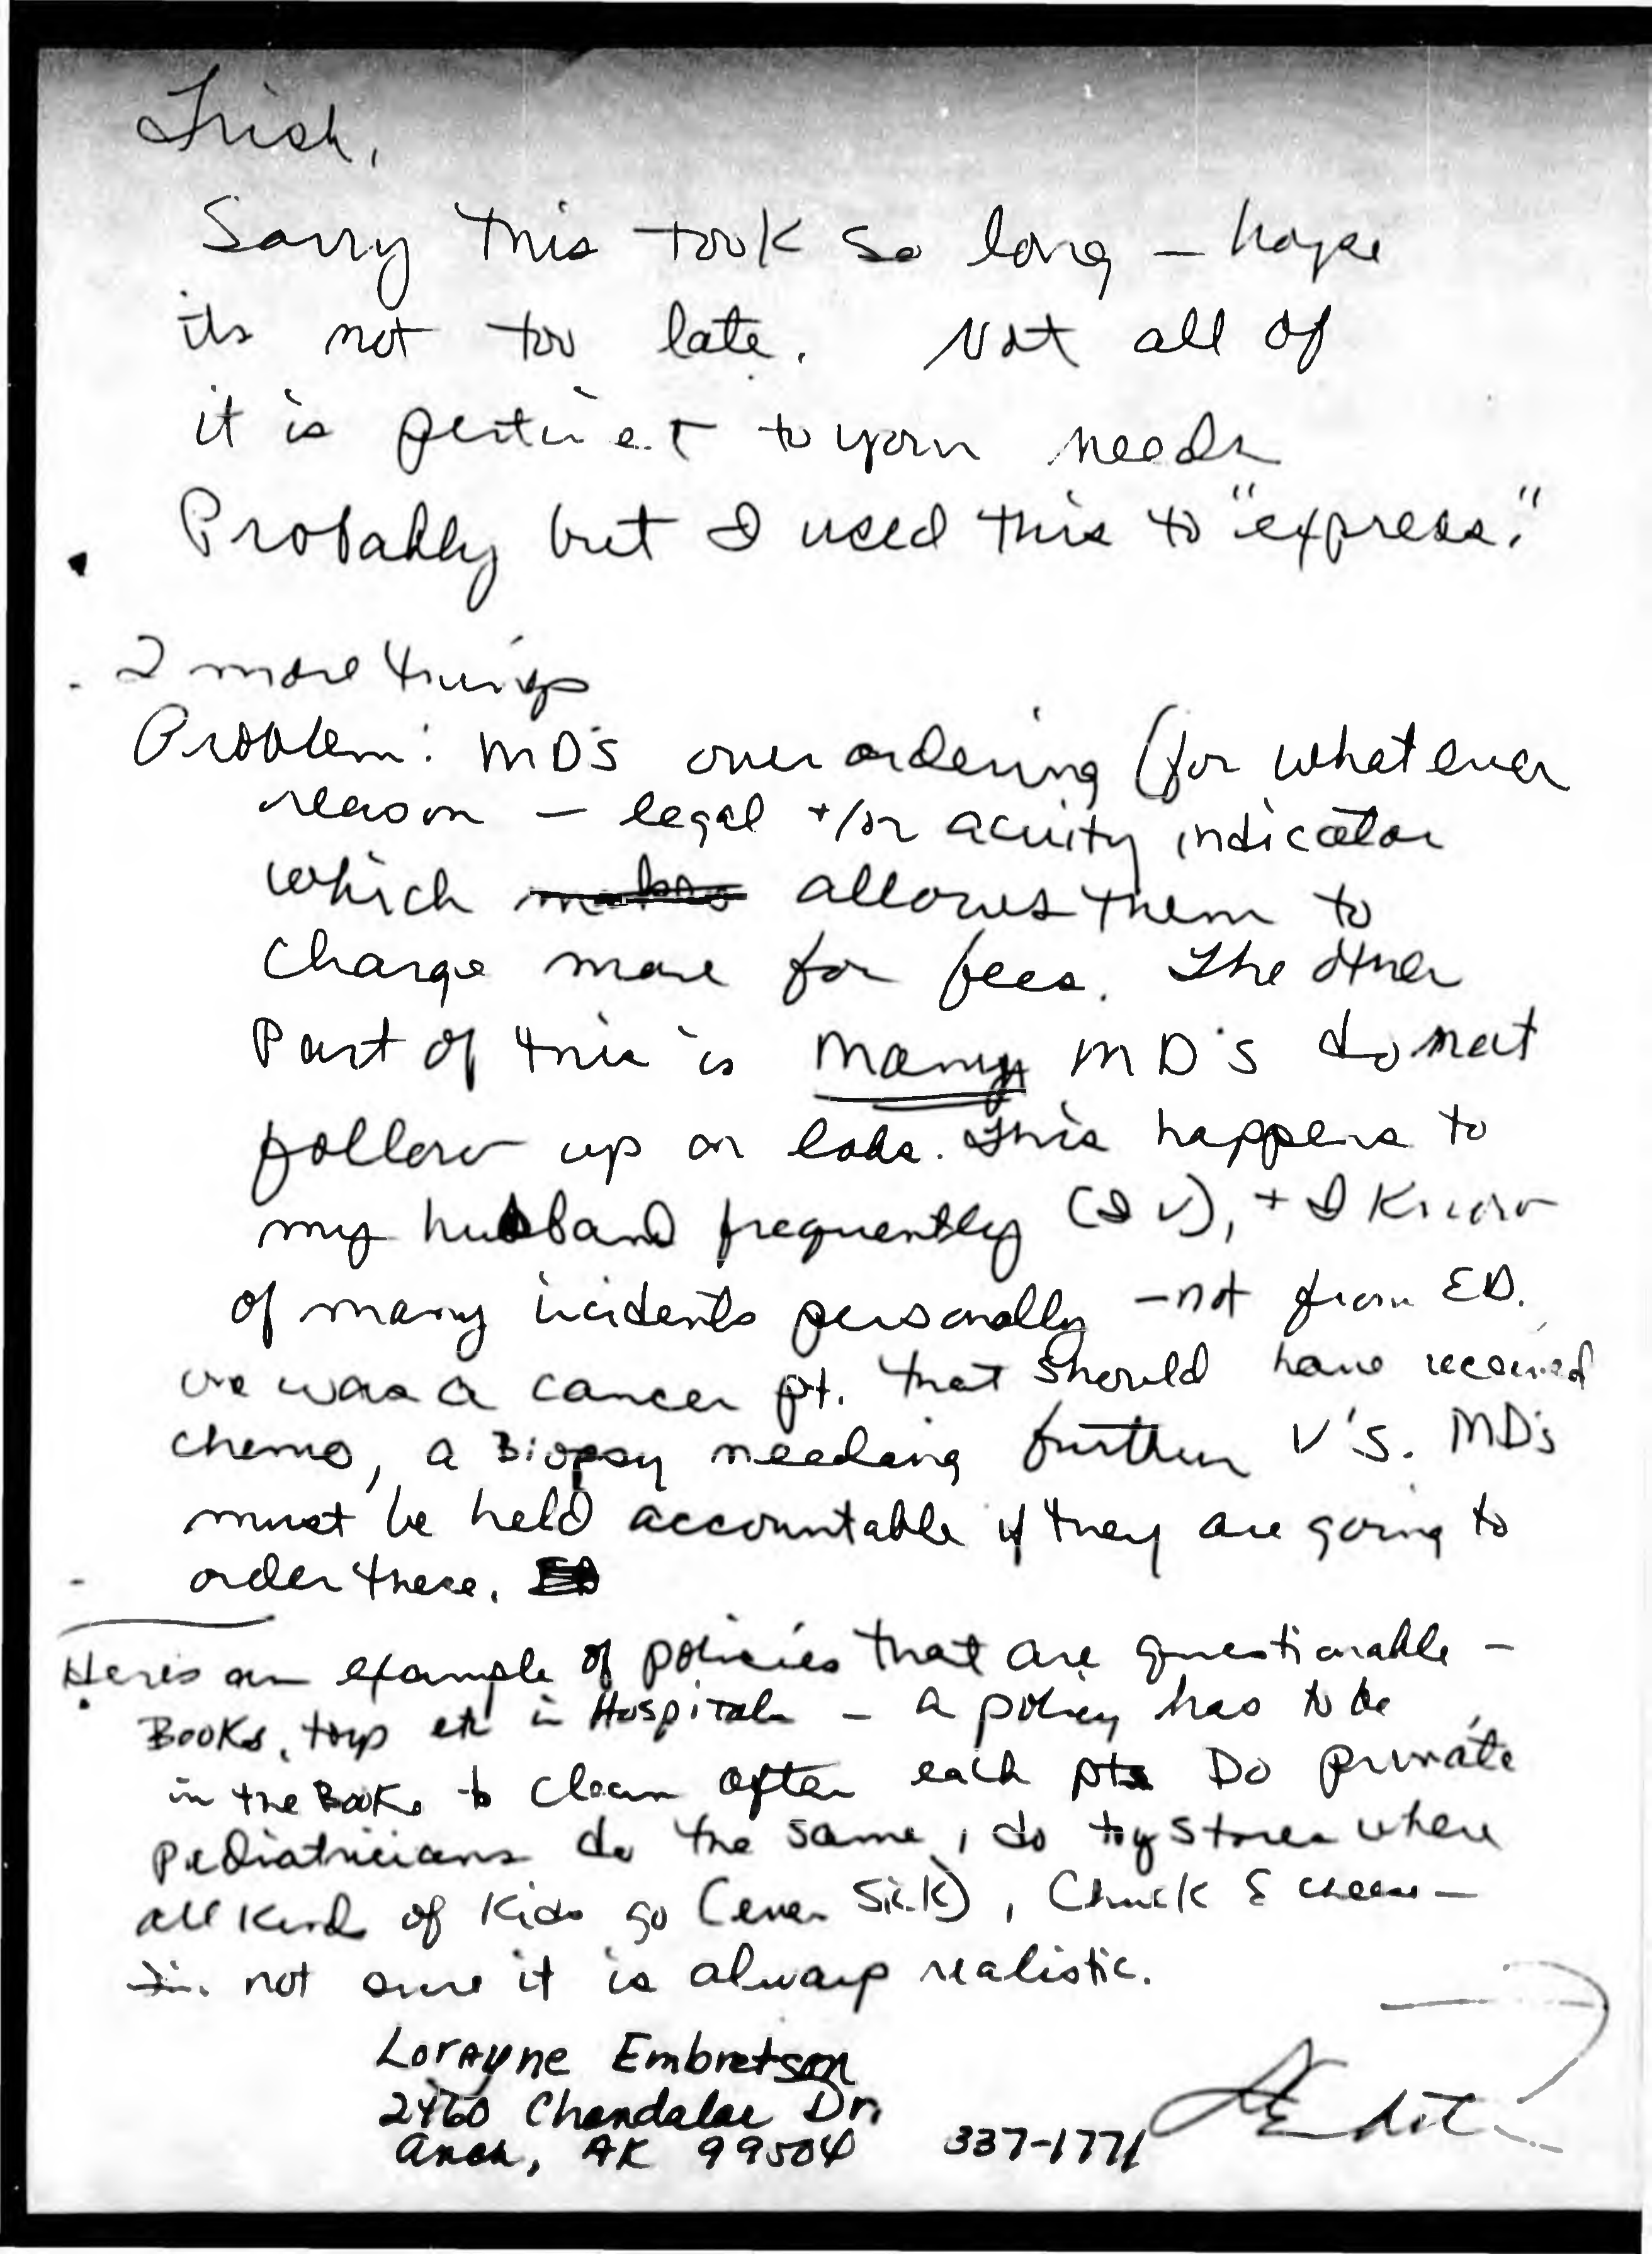 Trish,
Sorry this took so long – hope
its not too late. Not all of
it is pertinent to your needs
Probably but I used this to "express."
2 more things
Problem: MD'S over ordering (for whatever
reason – legal +/or acuity indicator
which makes allows them to
charge more for fees. The other
Part of this is many MD'S do not
follow up on labs. This happens to
my husband frequently (I V), + I know
of many incidents personally – not from ED.
one was a cancer pt. that should have received
chemo, a Biopsy needing further V'S. MD's
must be held accountable if they are going to
order these.
Here's an example of policies that are questionable –
Books, toys etc in Hospitals – a policy has to be
in the Books to clean after each pts Do private
pediatricians do the same, do toy stores where
all kind of kids go (even sick), Chuck E cheese –
not sure it is always realistic.
Lorayne Embretson
2460 Chandalar Dr.
Anch, AK 99504 337-1771